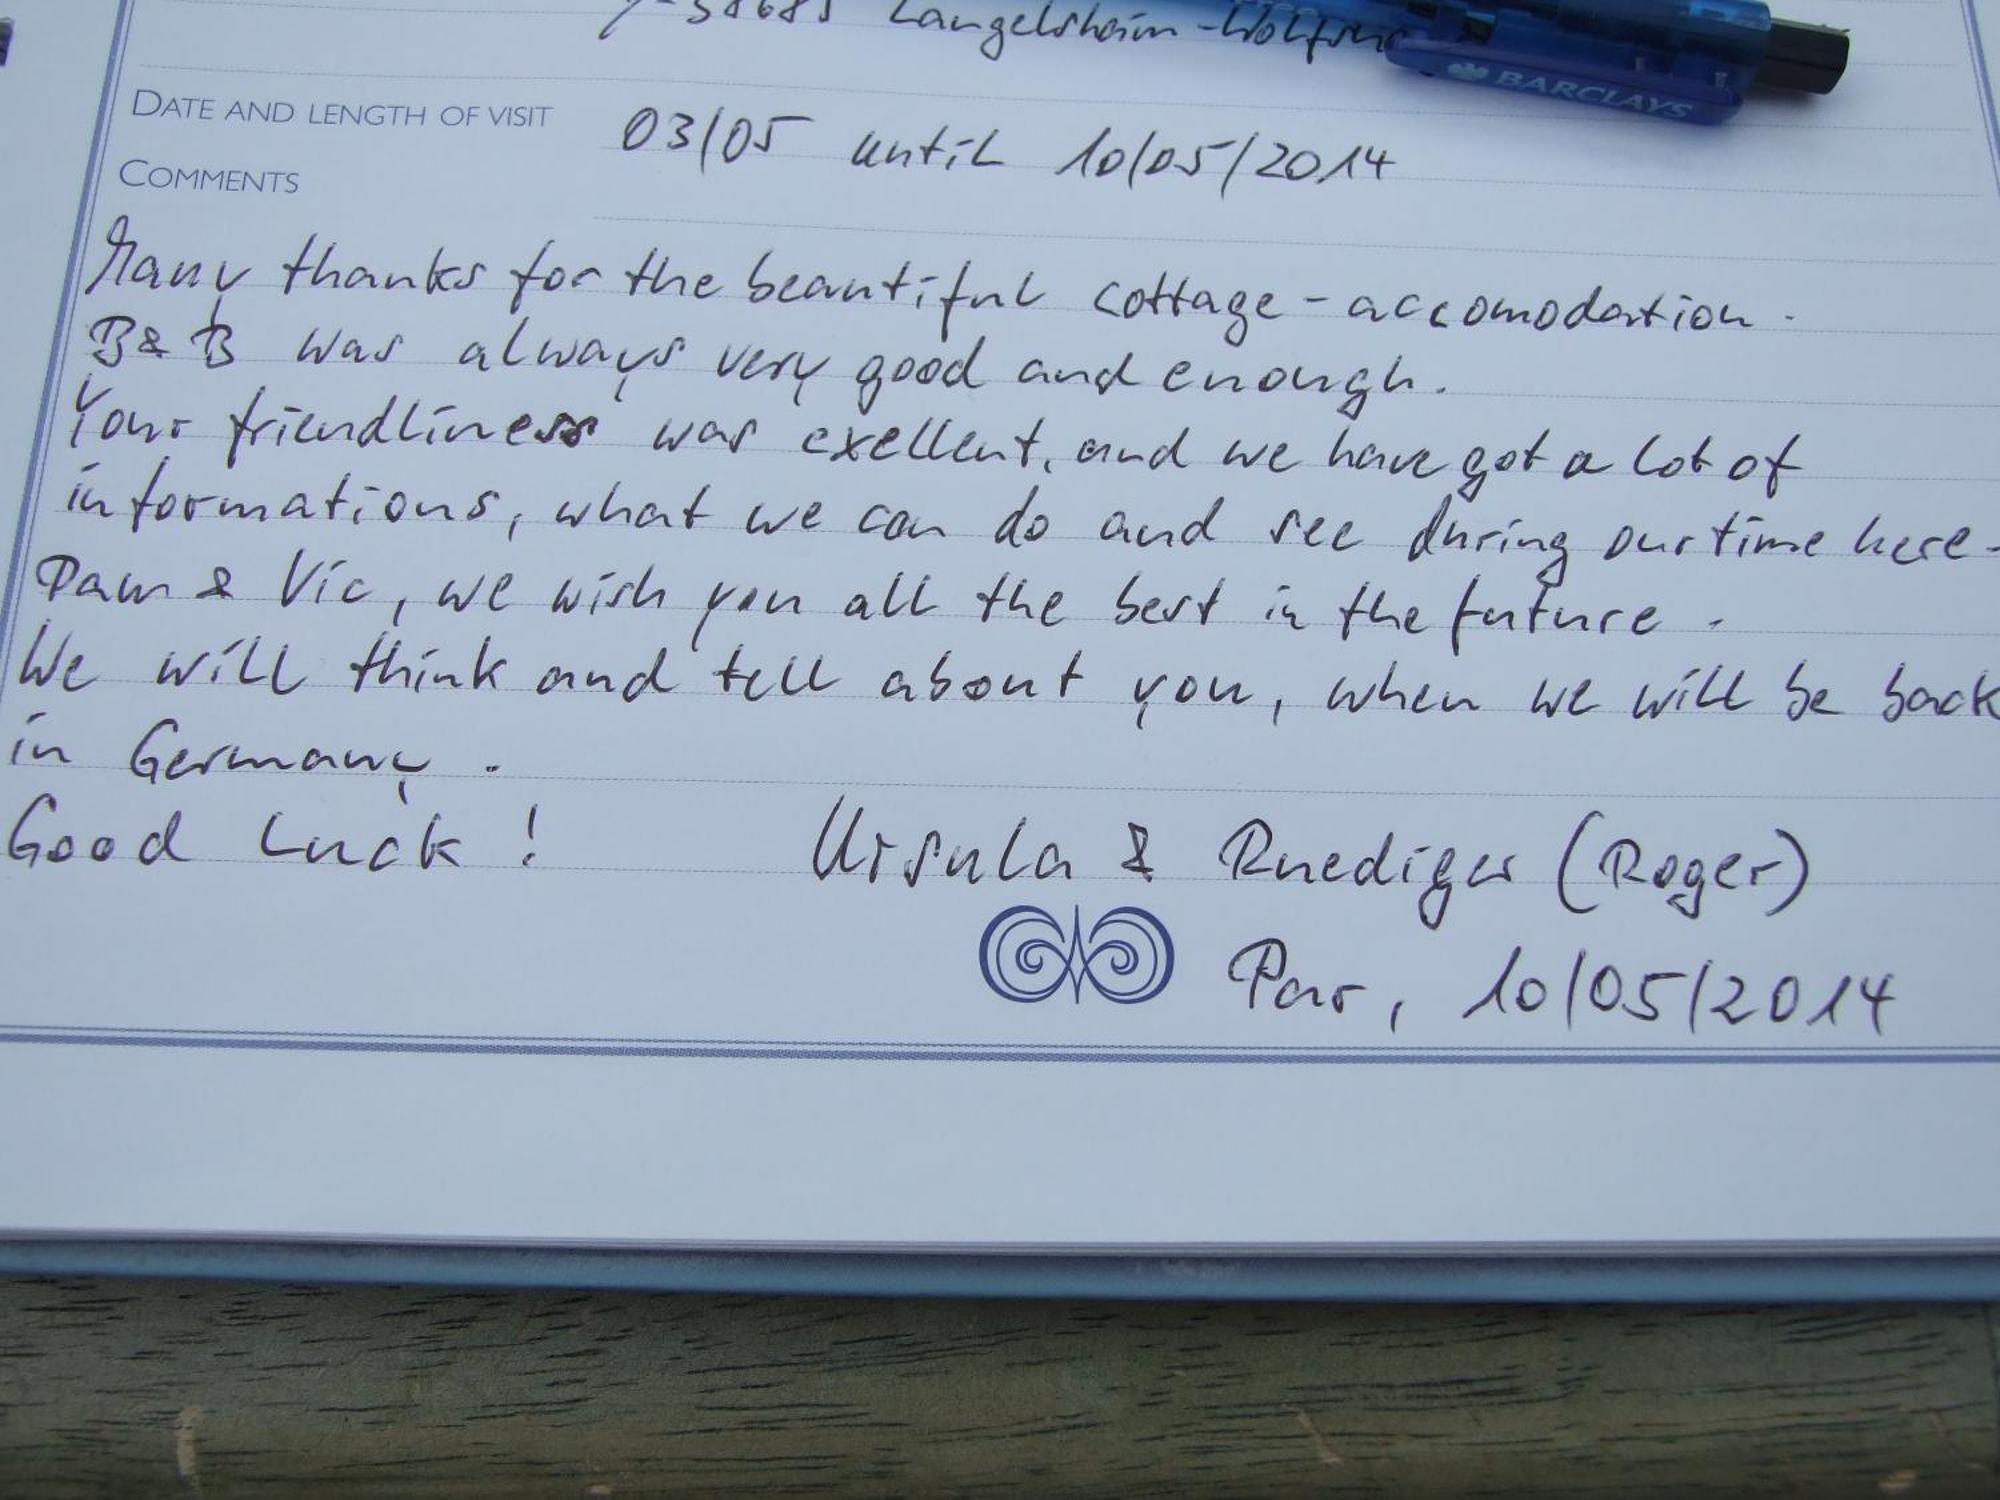 Langelsheim-
BARCLAYS
DATE AND LENGTH OF VISIT 03/05 until 10/05/2014
COMMENTS
Many thanks for the beautiful cottage-accomodation.
B&B was always very good and enough.
Your friendliness was exellent, and we have got a lot of
informations, what we can do and see during our time here.
Pam & Vic, we wish you all the best in the future.
We will think and tell about you, when we will be back
in Germany.
Good Luck! Ursula & Ruediger (Roger)
Par, 10/05/2014